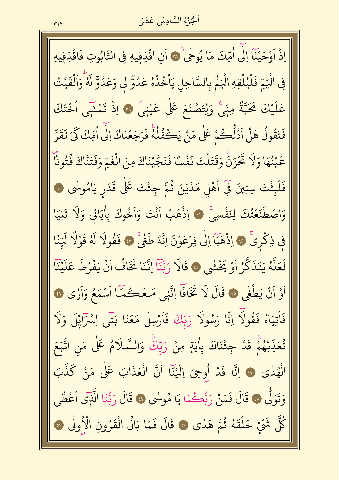 اَلْجُزْءُ السَّادِسُ عَشَرَ
اِذْ اَوْحَيْنَٓا اِلٰٓى اُمِّكَ مَا يُوحٰى ۙ اَنِ اقْذِف۪يهِ فِي التَّابُوتِ فَاقْذِف۪يهِ
فِي الْيَمِّ فَلْيُلْقِهِ الْيَمُّ بِالسَّاحِلِ يَأْخُذْهُ عَدُوٌّ ل۪ي وَعَدُوٌّ لَهُۜ وَاَلْقَيْتُ
عَلَيْكَ مَحَبَّةً مِنّ۪يۚ وَلِتُصْنَعَ عَلٰى عَيْن۪يۢ اِذْ تَمْش۪ٓي اُخْتُكَ
فَتَقُولُ هَلْ اَدُلُّكُمْ عَلٰى مَنْ يَكْفُلُهُۜ فَرَجَعْنَاكَ اِلٰٓى اُمِّكَ كَيْ تَقَرَّ
عَيْنُهَا وَلَا تَحْزَنَۜ وَقَتَلْتَ نَفْسًا فَنَجَّيْنَاكَ مِنَ الْغَمِّ وَفَتَنَّاكَ فُتُونًا۠
فَلَبِثْتَ سِن۪ينَ ف۪ٓي اَهْلِ مَدْيَنَ ثُمَّ جِئْتَ عَلٰى قَدَرٍ يَامُوسٰى
وَاصْطَنَعْتُكَ لِنَفْس۪يۚ اِذْهَبْ اَنْتَ وَاَخُوكَ بِاٰيَات۪ي وَلَا تَنِيَا
ف۪ي ذِكْر۪يۚ اِذْهَبَٓا اِلٰى فِرْعَوْنَ اِنَّهُ طَغٰىۚ فَقُولَا لَهُ قَوْلًا لَيِّنًا
لَعَلَّهُ يَتَذَكَّرُ اَوْ يَخْشٰى قَالَا رَبَّنَٓا اِنَّنَا نَخَافُ اَنْ يَفْرُطَ عَلَيْنَٓا
اَوْ اَنْ يَطْغٰى قَالَ لَا تَخَافَٓا اِنَّن۪ي مَعَكُمَٓا اَسْمَعُ وَاَرٰى
فَأْتِيَاهُ فَقُولَٓا اِنَّا رَسُولَا رَبِّكَ فَاَرْسِلْ مَعَنَا بَن۪ٓي اِسْرَٓائ۪لَ وَلَا
تُعَذِّبْهُمْۜ قَدْ جِئْنَاكَ بِاٰيَةٍ مِنْ رَبِّكَۜ وَالسَّلَامُ عَلٰى مَنِ اتَّبَعَ
الْهُدٰى اِنَّا قَدْ اُوحِيَ اِلَيْنَٓا اَنَّ الْعَذَابَ عَلٰى مَنْ كَذَّبَ
وَتَوَلّٰى قَالَ فَمَنْ رَبُّكُمَا يَا مُوسٰى قَالَ رَبُّنَا الَّذ۪ٓي اَعْطٰى
كُلَّ شَيْءٍ خَلْقَهُ ثُمَّ هَدٰى قَالَ فَمَا بَالُ الْقُرُونِ الْاُو۫لٰى